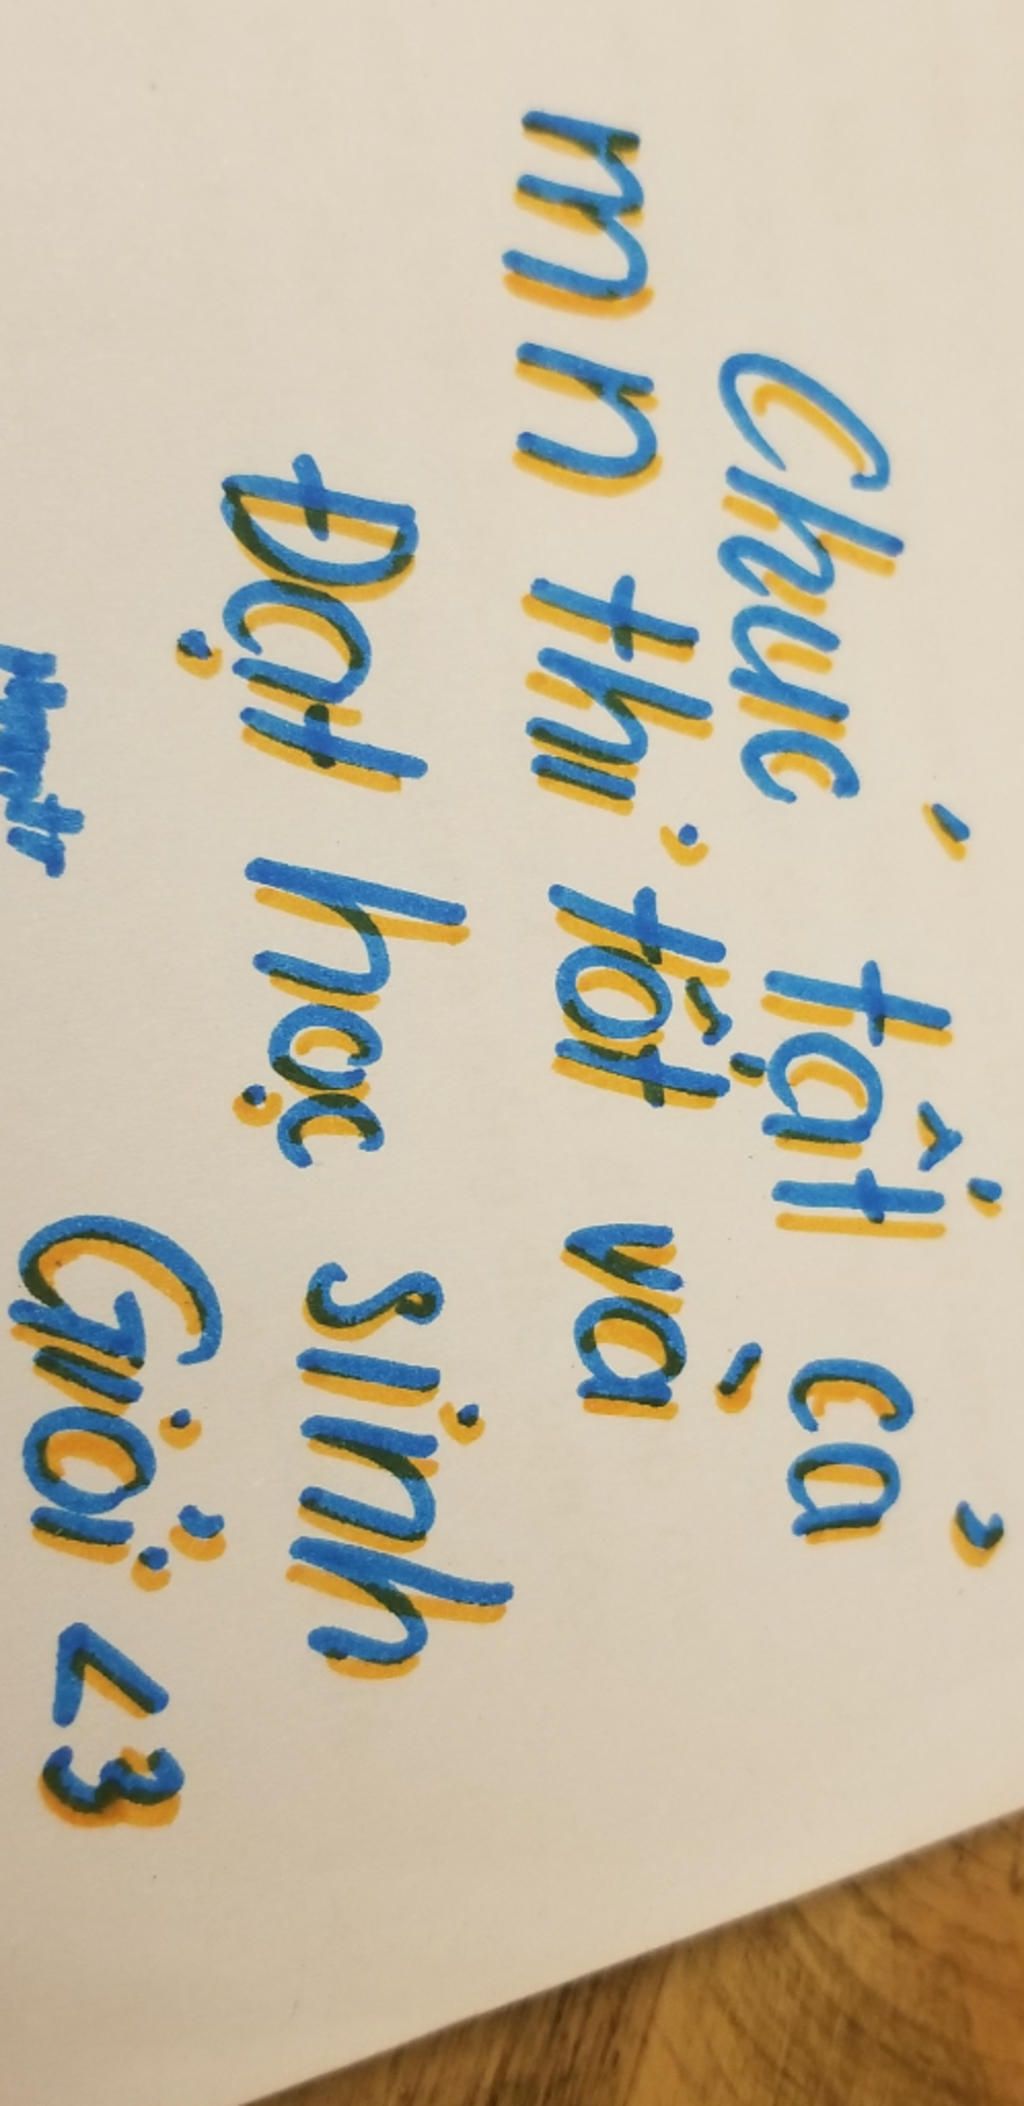 Chúc tất cả
mn thi tốt và
Đạt học sinh
Giỏi <3